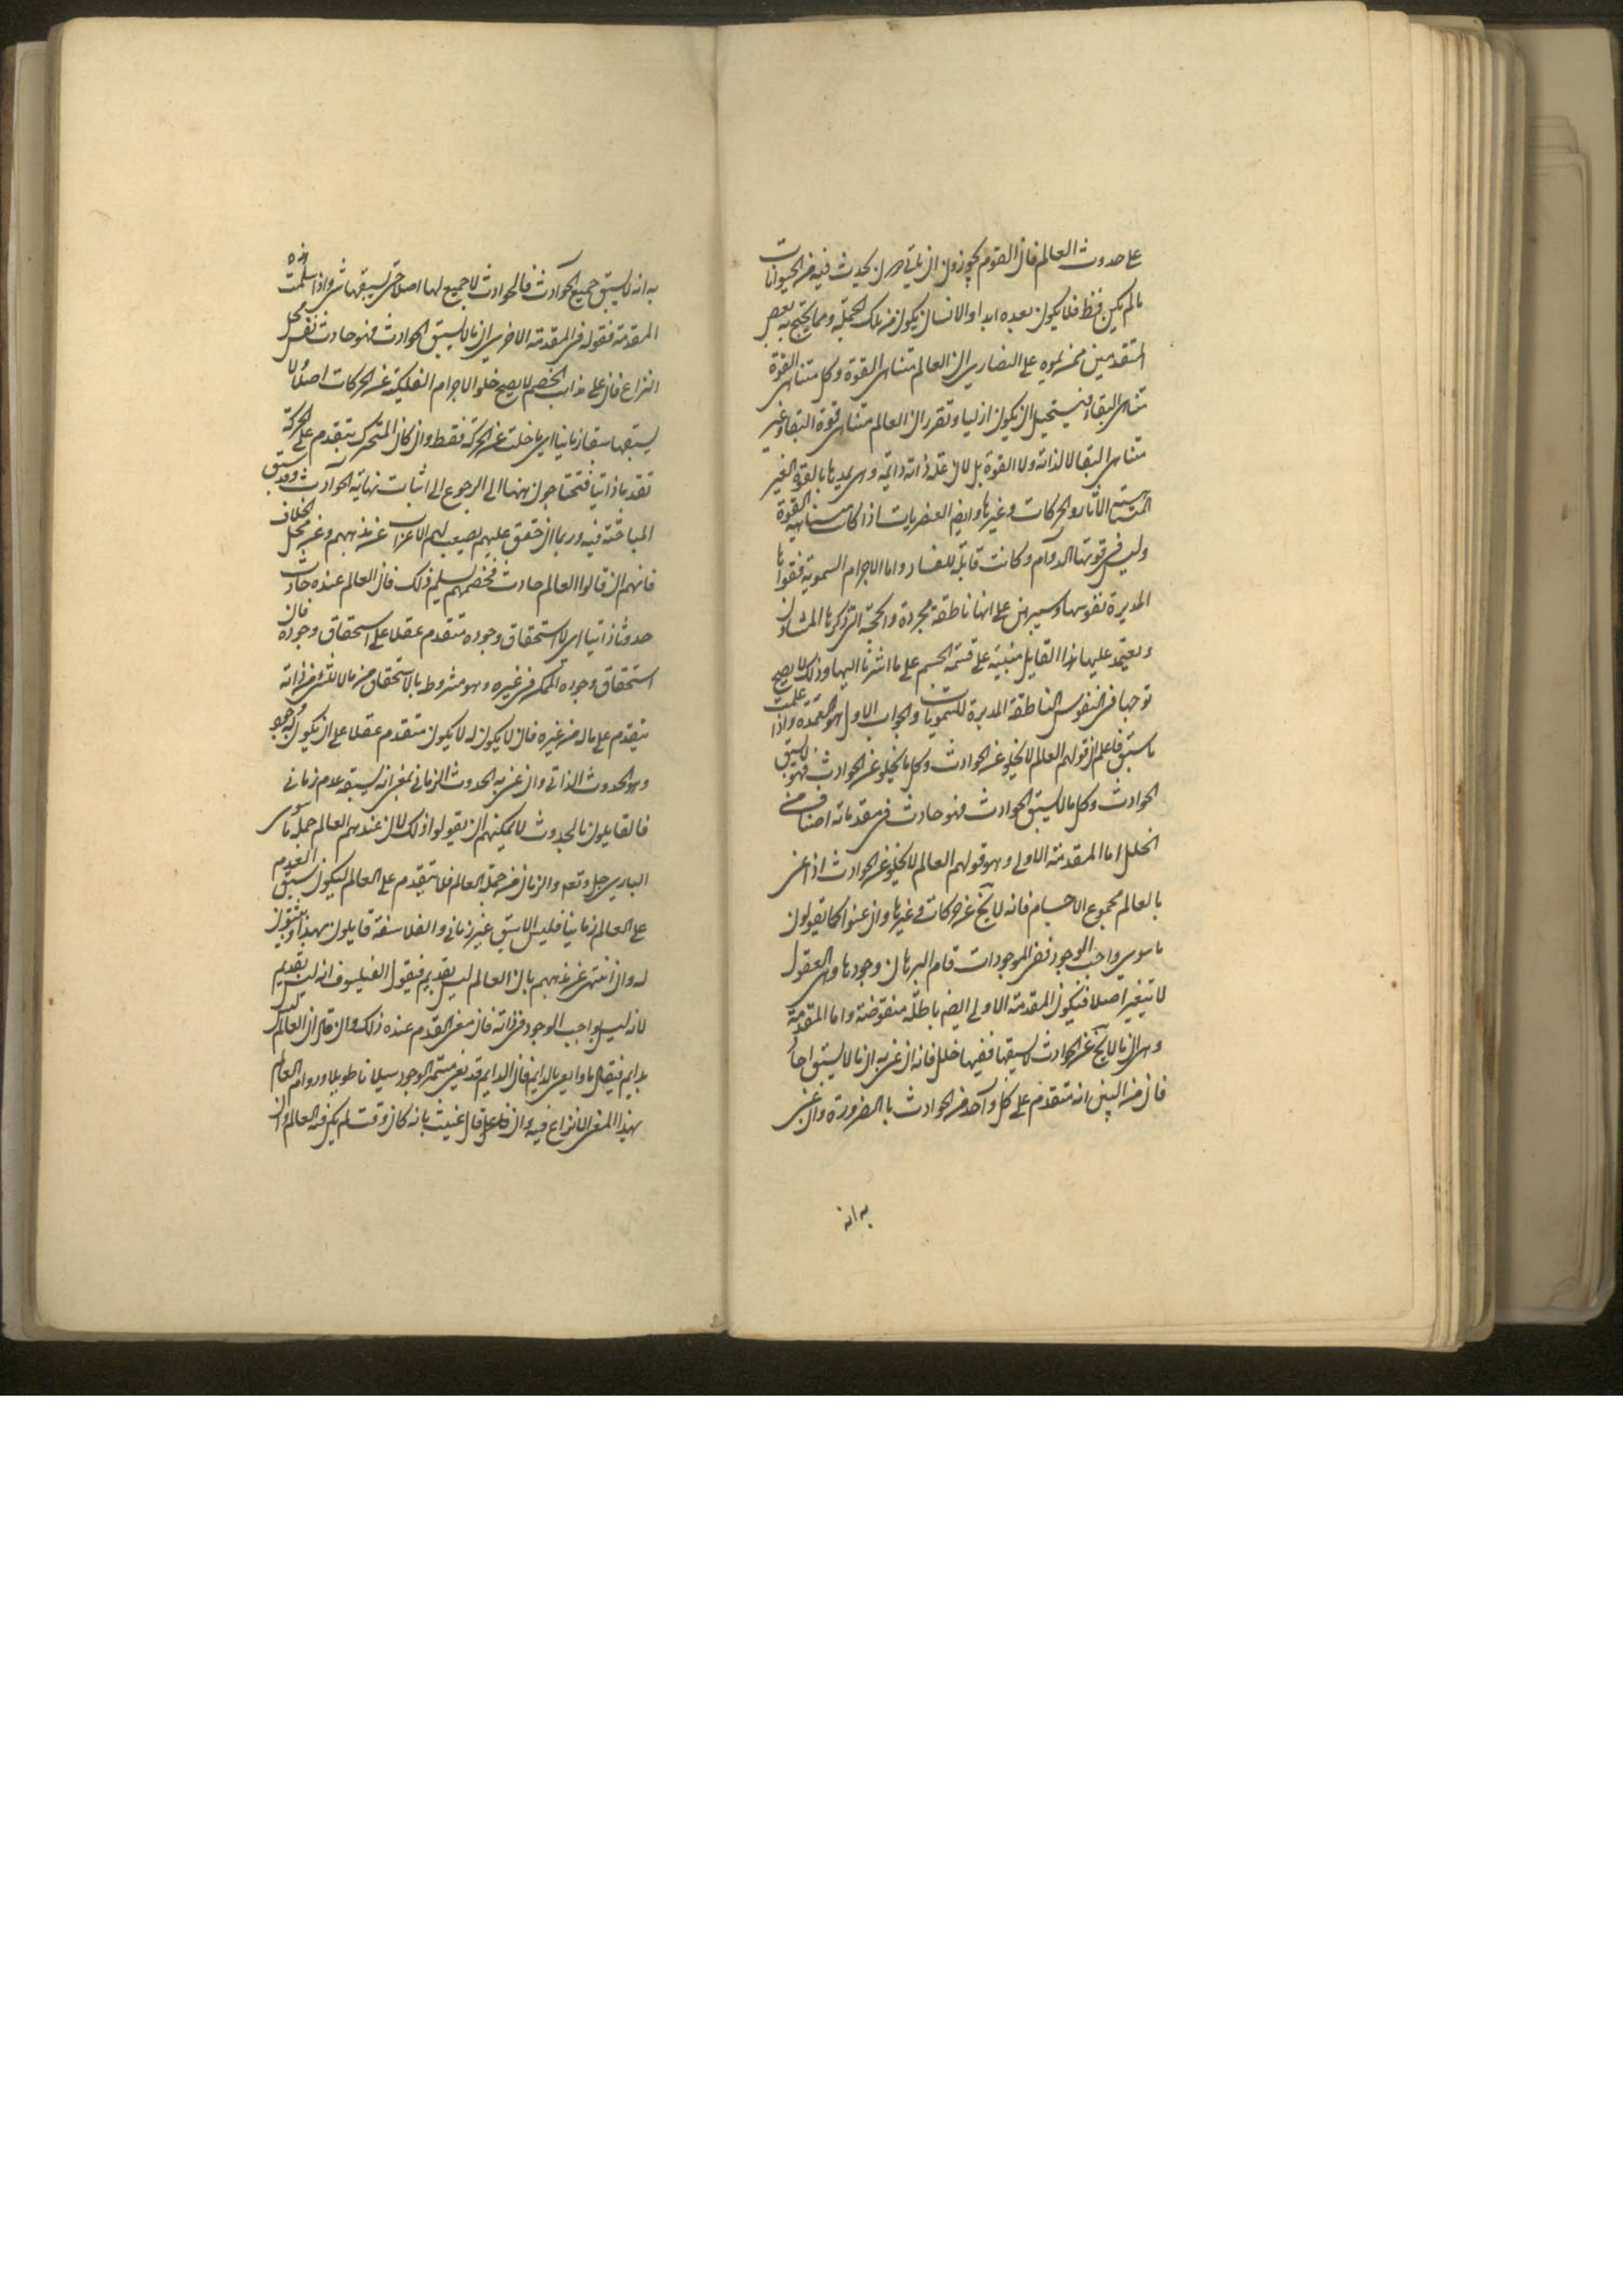 على حدوث العالم فان القوم يجوزون ان ياتي حين يحدث فيه من الحيوانات
ما لم يكن قط فلا يكون بعده ابدا والانسان يكون من تلك الجملة ومما يحتج به بعض
المتقدمين ممن يموه على النصارى ان العالم متناهى القوة وكل متناهى القوة
متناهى البقاء فيستحيل ان يكون ازليا وتقرر ان العالم متناهى قوة البقا وغير
متناهى البقا لا لذاته ولا القوة بل لان علة ذاته دائمة وهى يمدها بالقوة الغير
المتناهية الآثار والحركات وغيرها وايضا العنصريات اذا كانت متناهية القوة
وليس فى قوتها الدوام وكانت قابلة للفساد واما الاجرام السموية فقواها
المديرة نفوسها وسيبرهن على انها ناطقة مجردة والحجة التى ذكرها المشاؤن
ويعتمد عليها هذا القايل مبنية على قسمة الجسم على ما اشرنا اليها وذلك لا يصح
توجها فى النفوس الناطقة المدبرة للسمويات والجواب الاول هو العمدة واذا علمت
ما سبق فاعلم ان قولهم العالم لا يخلو عن الحوادث وكل ما لا يخلو عن الحوادث فهو لا يسبق
الحوادث وكل ما لا يسبق الحوادث فهو حادث فى مقدماته اصناف من
الخلل اما المقدمة الاولى وهو قولهم العالم لا يخلو عن الحوادث اذا عنى
بالعالم مجموع الاجسام فانه لا يخ عن حركات وغيرها وان عنوا كما يقولون
ما سوى واجب الوجود فمن الموجودات قام البرهان وجودها وهى العقول
لا تتغير اصلا فتكون المقدمة الاولى ايضا باطلة منقوضة واما المقدمة
وهى ان ما لا يخ عن الحوادث لا يسبقها ففيها خلل فانه ان عنى به ان ما لا يسبق احاد
فان من البين انه متقدم على كل واحد من الحوادث بالضرورة وان عنى
به انه
به انه لا يسبق جميع الحوادث فالحوادث لا جميع لها اصلا حتى يسبقها شئ واذا سلمت هذه
المقدمة فقوله فى المقدمة الاخرى ان ما لا يسبق الحوادث فهو حادث نفس محل
النزاع فان على مذاهب الخصم لا يصح خلو الاجرام الفلكية عن الحركات اصلا ولا
يسبقها سبقا زمانيا اى ما خلت عن الحركة فقط وان كان المتحرك يتقدم على الحركة
تقدما ذاتيا فتحتاجون ههنا الى الرجوع الى اثبات نهاية الحوادث وقد سبق
المباحثة فيه وربما ان حقق عليهم يصعب لهم الاعراب عن مذهبهم وعن محل الخلاف
فانهم ان قالوا العالم حادث فخصمهم يسلم ذلك فان العالم عنده حادث
حدوثا ذاتيا اى لا استحقاق وجوده متقدم عقلا على استحقاق وجوده فان
استحقاق وجود الممكن من غيره وهو مشروط بالا ستحقاق من ما لا للشئ من ذاته
يتقدم على ماله من غيره فان لا يكون له لا يكون متقدم عقلا على ان يكون له وجود
وهو الحدوث الذاتى وان عنى به الحدوث الزمانى بمعنى انه يسبقه عدم زمانى
فالقايلون بالحدوث لا يمكنهم ان يقولوا ذلك لان عندهم العالم جملة ما سوى
البارى جل وتعه والزمان من جملة العالم فلا يتقدم على العالم ليكون سبق العدم
على العالم زمانيا فليس الا سبق غير زمانى والفلاسفة قايلون بهذا ويثبتون
له وان انتهى عن مذهبهم بان العالم ليس بقديم فيقول الفيلسوف انه ليس بقديم
لانه ليس بواجب الوجود فى ذاته فان معنى القدم عنده ذلك وان قال ان العالم ليس
بدايم فيقال ماذا يعنى بالدايم فان الدايم قد يعنى مستمر الوجود سيلانا طويلا ودوام العالم
بهذا المعنى لا نزاع فيه وان قال عنيت بانه كان وقت لم يكن فيه العالم وان